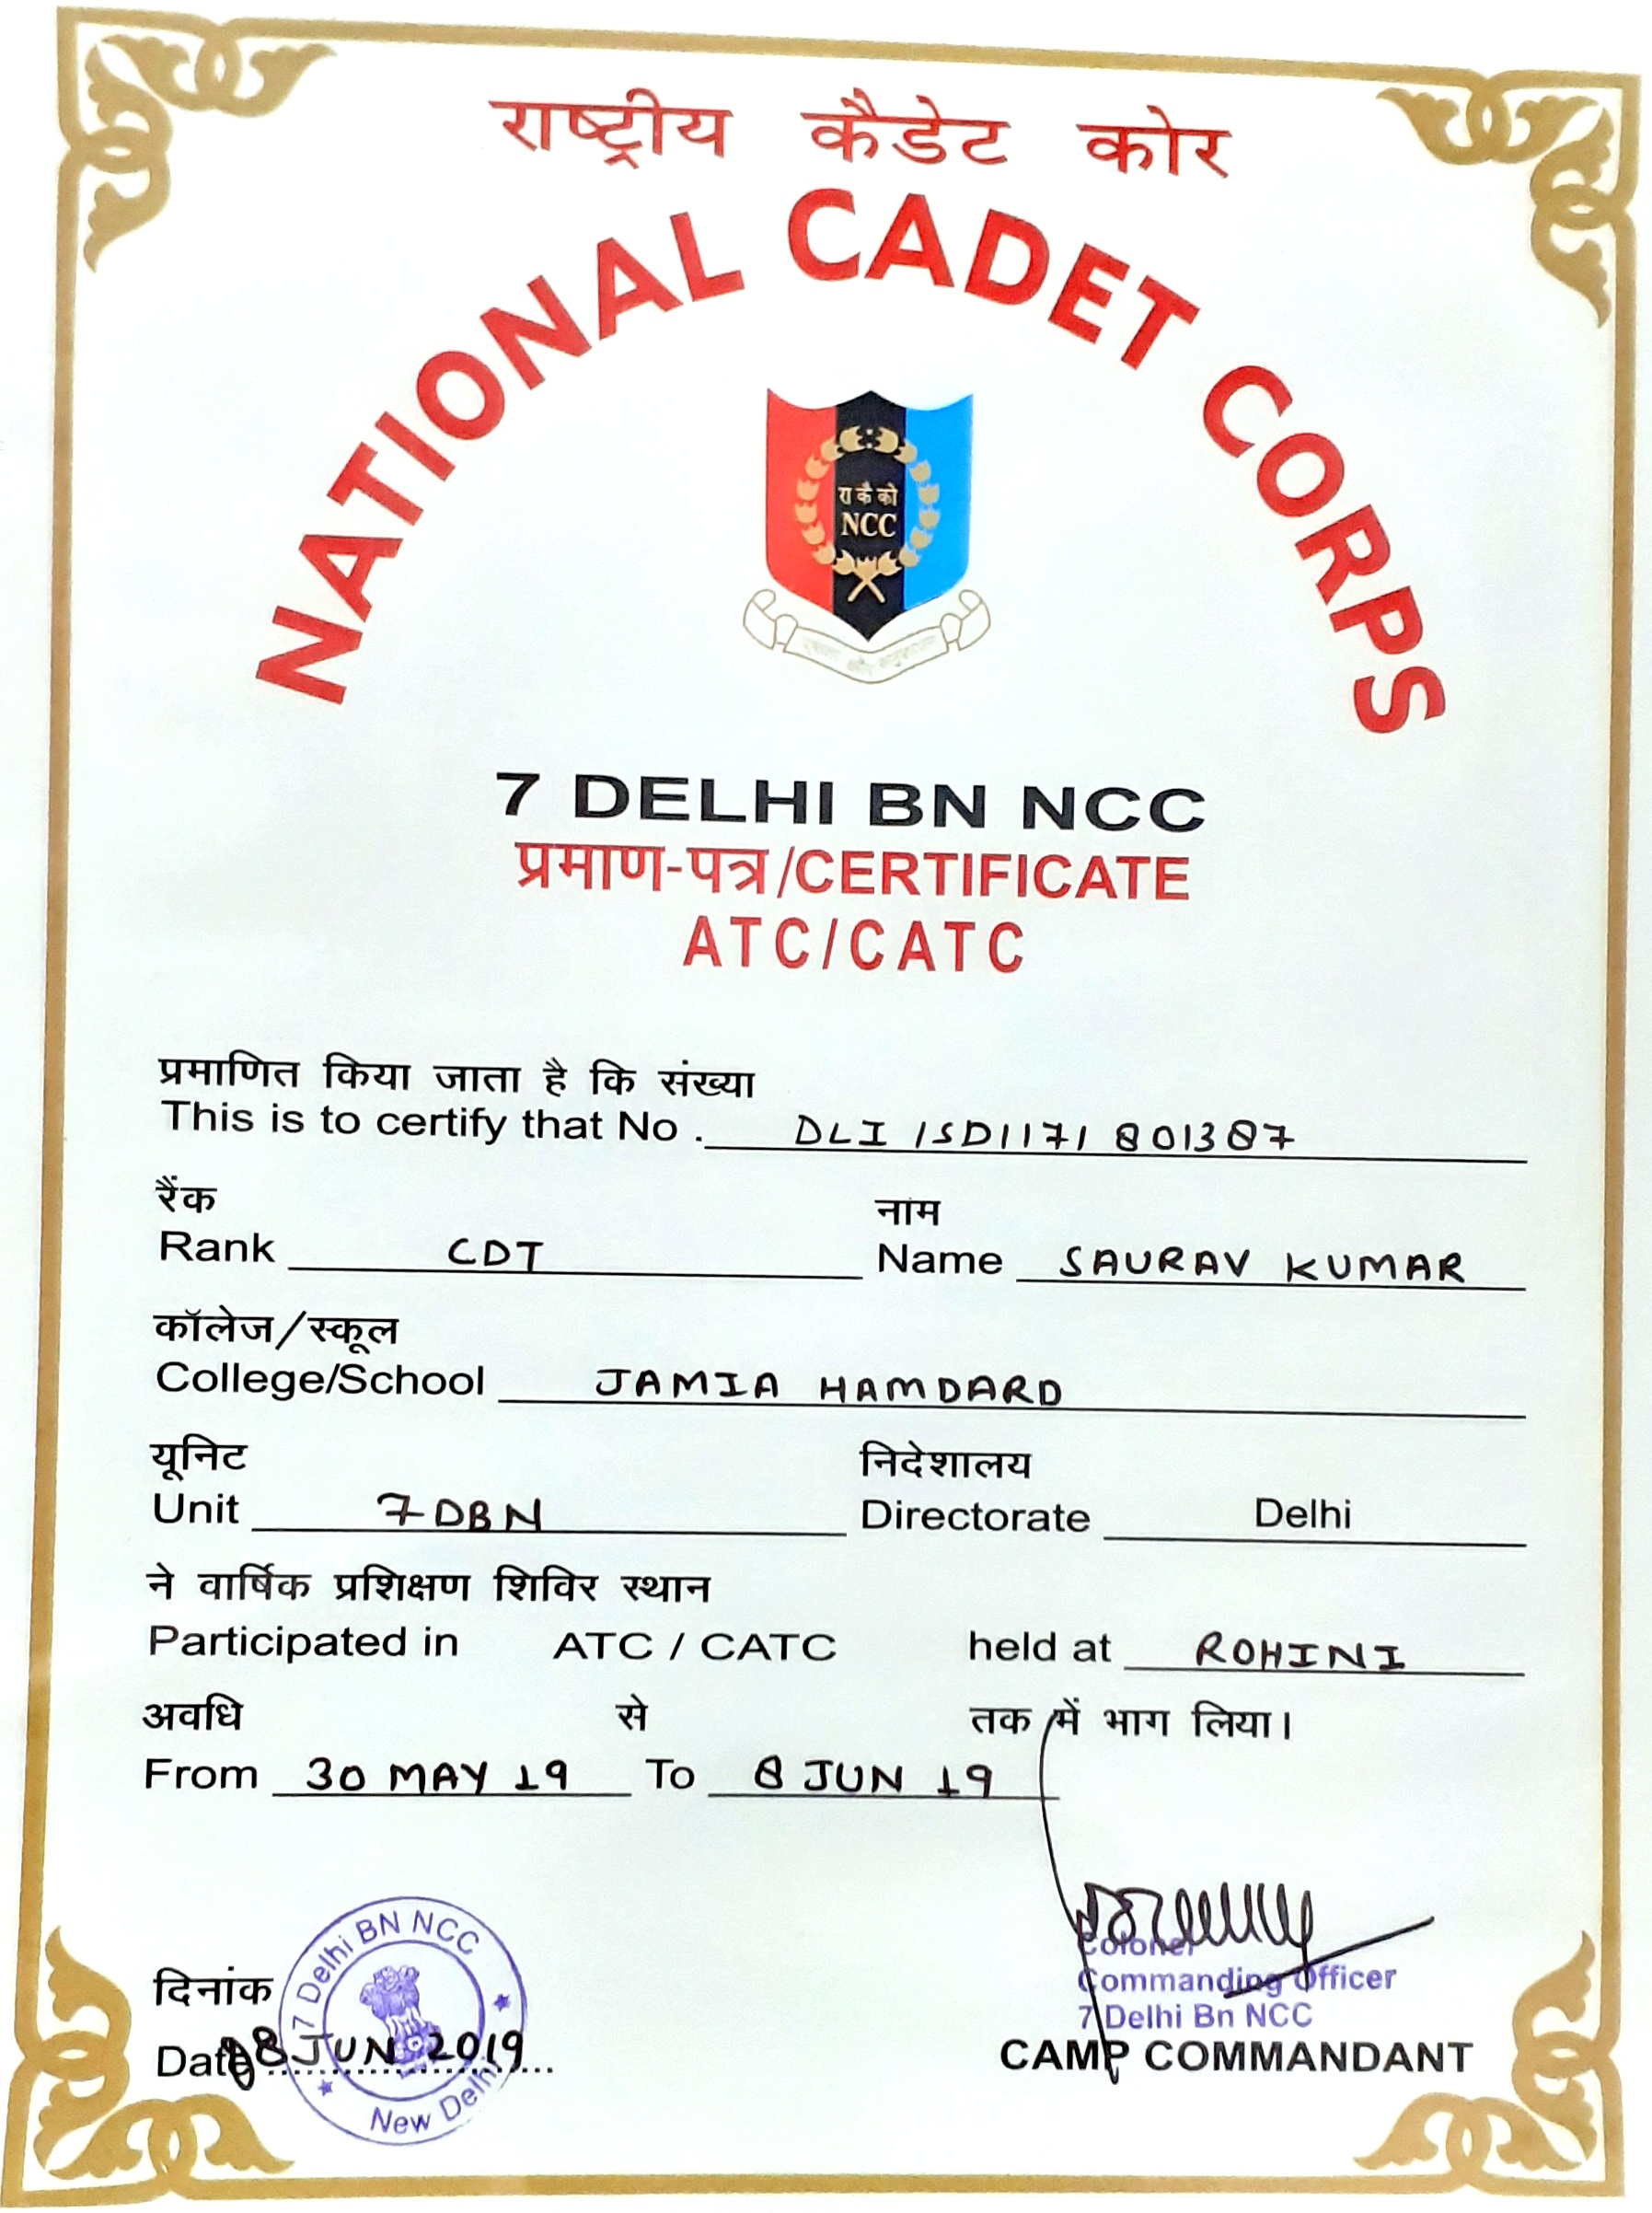 राष्ट्रीय कैडेट कोर
NATIONAL CADET CORPS
रा कै को
NCC
7 DELHI BN NCC
प्रमाण-पत्र/CERTIFICATE
ATC/CATC
प्रमाणित किया जाता है कि संख्या
This is to certify that No. DLI ISD1171 801387
रैंक नाम
Rank CDT Name SAURAV KUMAR
कॉलेज/स्कूल
College/School JAMIA HAMDARD
यूनिट निदेशालय
Unit 7 DBN Directorate Delhi
ने वार्षिक प्रशिक्षण शिविर स्थान
Participated in ATC / CATC held at ROHINI
अवधि से तक में भाग लिया।
From 30 MAY 19 To 8 JUN 19
7 Delhi BN NCC
New Delhi
दिनांक
Date 08 JUN 2019
Colonel
Commanding Officer
7 Delhi Bn NCC
CAMP COMMANDANT